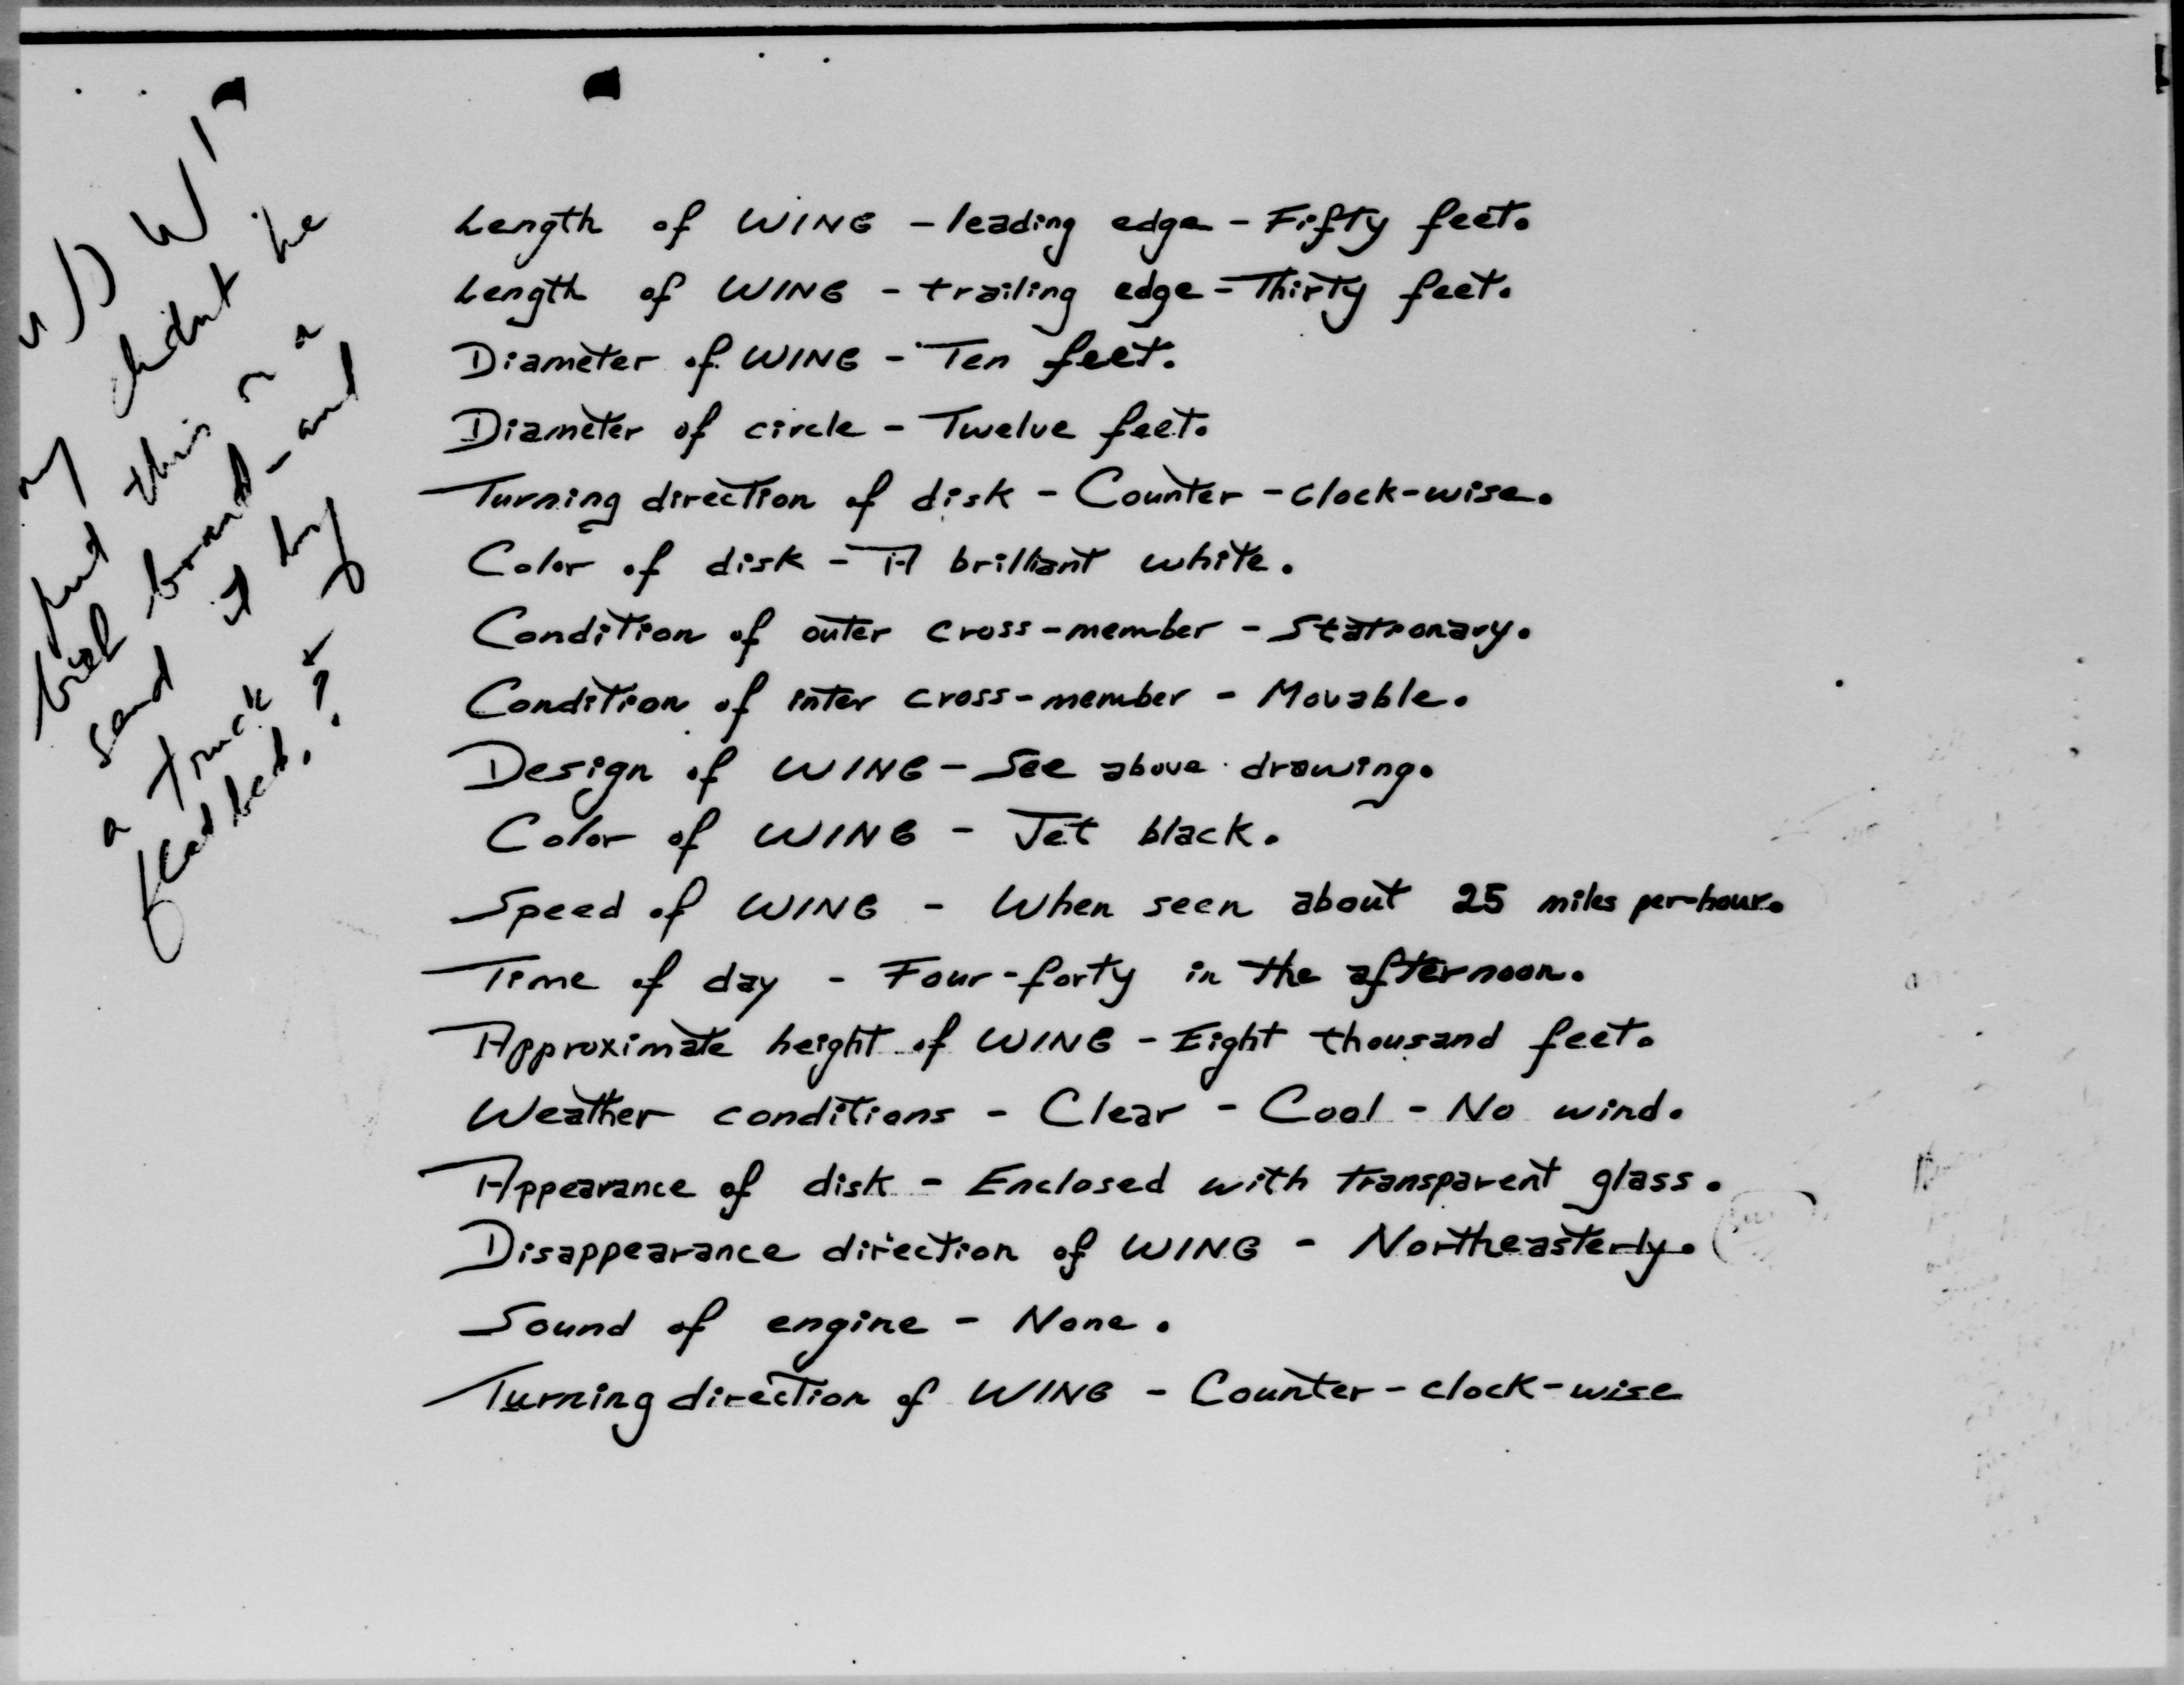 didnt he
put this on a
bill board - and
send it by
a truck &
feed bed.?
Length of WING - leading edge - Fifty feet.
Length of WING - trailing edge - Thirty feet.
Diameter of WING - Ten feet.
Diameter of circle - Twelve feet.
Turning direction of disk - Counter - clock-wise.
Color of disk - A brilliant white.
Condition of outer cross-member - Stationary.
Condition of inter cross-member - Movable.
Design of WING - See above drawing.
Color of WING - Jet black.
Speed of WING - When seen about 25 miles per-hour.
Time of day - Four-forty in the afternoon.
Approximate height of WING - Eight thousand feet.
Weather conditions - Clear - Cool - No wind.
Appearance of disk - Enclosed with transparent glass.
Disappearance direction of WING - Northeasterly.
Sound of engine - None.
Turning direction of WING - Counter-clock-wise